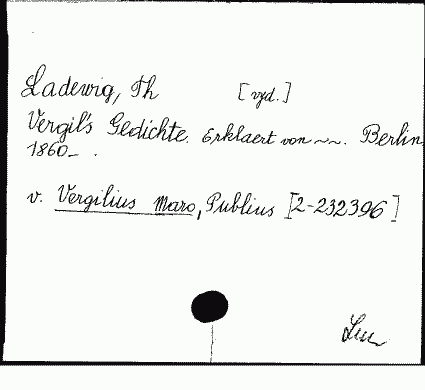 Ladewig, Th [vyd.]
Vergil's Gedichte. Erklaert von ~~. Berlin
1860- .
v. Vergilius Maro, Publius [2-232396]